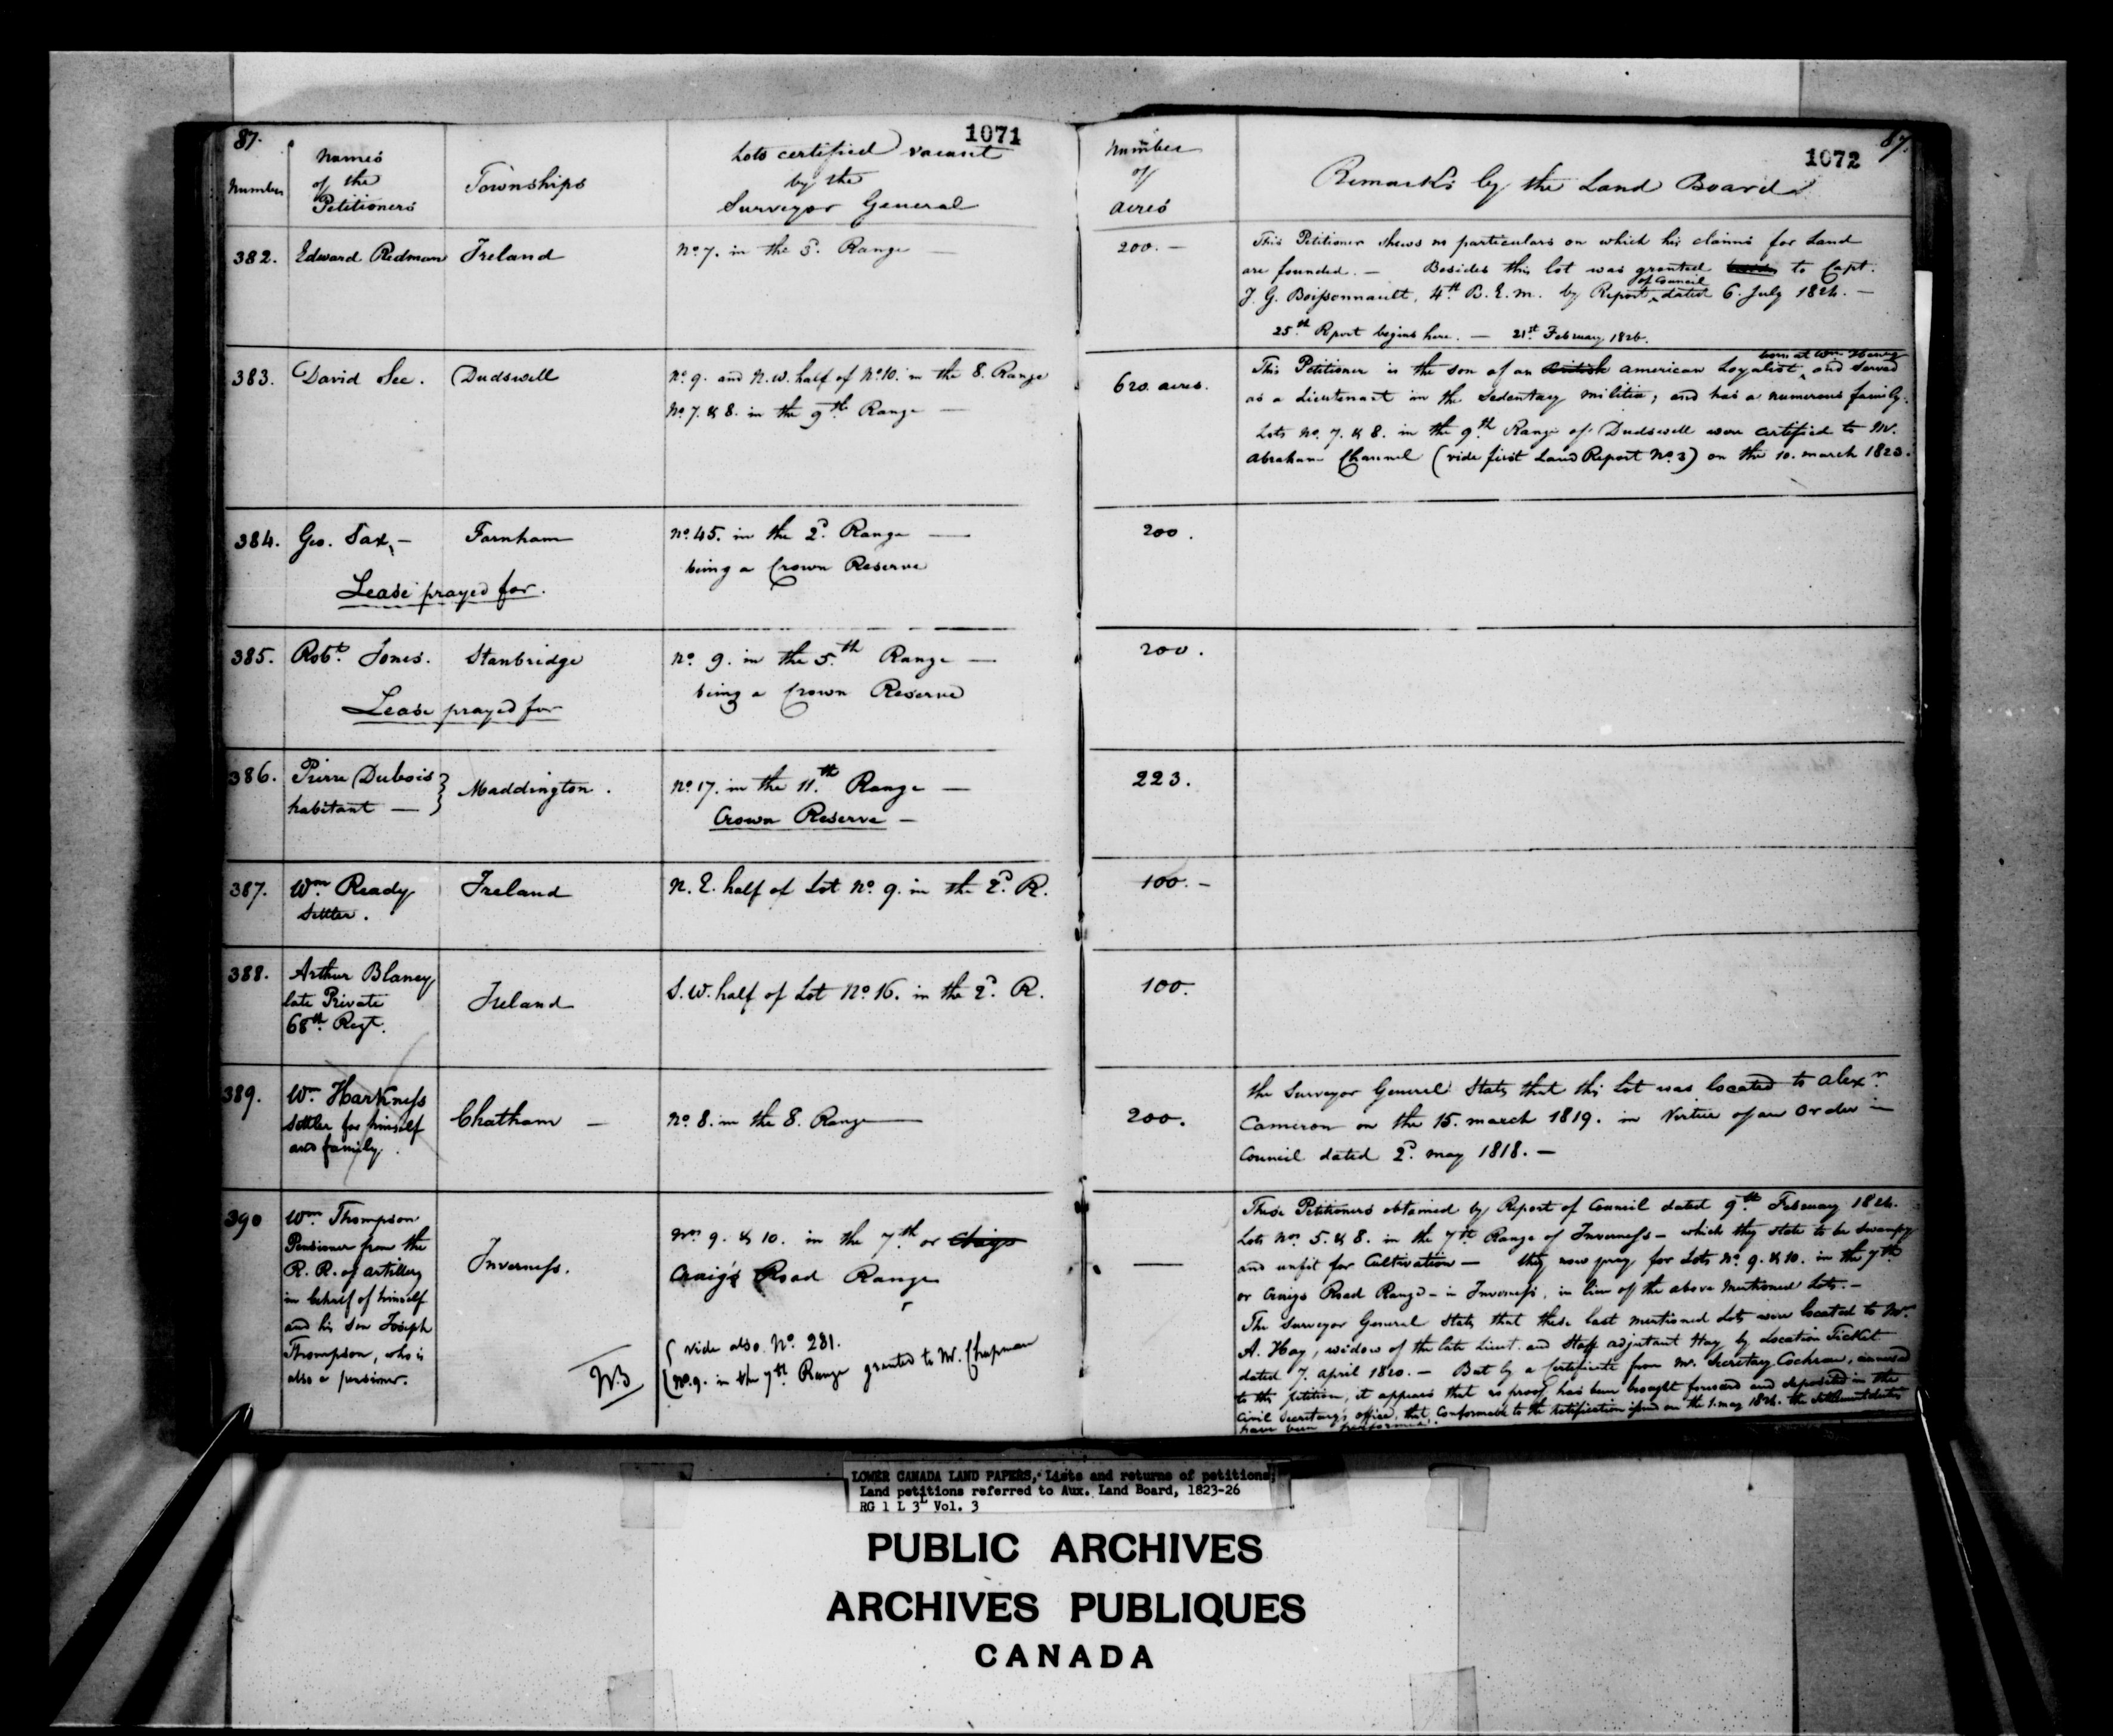 87.
1071
Number
Names
of the
Petitioners
Townships
Lots certified vacant
by the
Surveyor General
382. Edward Redman Ireland No. 7. in the 3d. Range —
383. David See. Dudswell No. 9. and N.W. half of No. 10. in the 8. Range
No. 7. & 8. in the 9th Range —
384. Geo. Sax, — Farnham No. 45. in the 2d. Range —
being a Crown Reserve
Lease prayed for.
385. Robt. Jones. Stanbridge No. 9. in the 5th Range —
being a Crown Reserve
Lease prayed for
386. Pierre Dubois
habitant — } Maddington. No. 17. in the 11th Range —
Crown Reserve —
387. Wm Ready Ireland N. E. half of Lot No. 9. in the 2d. R.
Settler.
388. Arthur Blaney
late Private
68th Regt.
Ireland S.W. half of Lot No. 16. in the 2d. R.
389. Wm. Harkness
Settler for himself
and family.
Chatham — No. 8. in the 8. Range —
390 Wm. Thompson
Pensioner from the
R. R. of artillery
in behalf of himself
and his son Joseph
Thompson, who is
also a pensioner.
Inverness.
Nos 9. & 10. in the 7th or Craigs
Craig's Road Range
NB
( vide also No. 281.
( No. 9. in the 7th Range granted to Mr. Chapman
1072
87.
Number
of
acres
Remarks by the Land Board
200. —
This Petitioner shews no particulars on which his claims for Land
are founded. — Besides this lot was granted to Capt.
of Council
J. G. Boissonnault, 4th B. E. M. by Report dated 6. July 1824. —
25th Report begins here. — 21st February 1826.
620 acres.
This Petitioner is the son of an British American Loyalist, and served
as a Lieutenant in the Sedentary Militia; and has a numerous family.
Lots No. 7. & 8. in the 9th Range of Dudswell were certified to Mr.
Abraham Channel (vide first Land Report No. 3) on the 10. March 1823.
200.
200.
223.
100. —
100.
200.
the Surveyor General States that this Lot was located to Alexr.
Cameron on the 15. March 1819. in Virtue of an Order in
Council dated 2d. May 1818. —
—
These Petitioners obtained by Report of Council dated 9th February 1824.
Lots Nos 5. & 8. in the 7th Range of Inverness — which they state to be swampy
and unfit for Cultivation — they now pray for Lots No. 9. & 10. in the 7th
or Craigs Road Range — in Inverness, in lieu of the above Mentioned Lots. —
The Surveyor General States that these last mentioned Lots were located to Mrs
A. Hay, widow of the late Lieut. and Staff adjutant Hay by Location Ticket
dated 7. April 1820. — But by a Certificate from Mr. Secretary Cochran, annexed
to this petition, it appears that no proof has been brought forward and deposited in the
Civil Secretary's office, that, conformable to the notification issued on the 1. May 1824. the settlement duties
have been performed.
LOWER CANADA LAND PAPERS, Lists and returns of petitions;
Land petitions referred to Aux. Land Board, 1823-26
RG 1 L 3L Vol. 3
PUBLIC ARCHIVES
ARCHIVES PUBLIQUES
CANADA